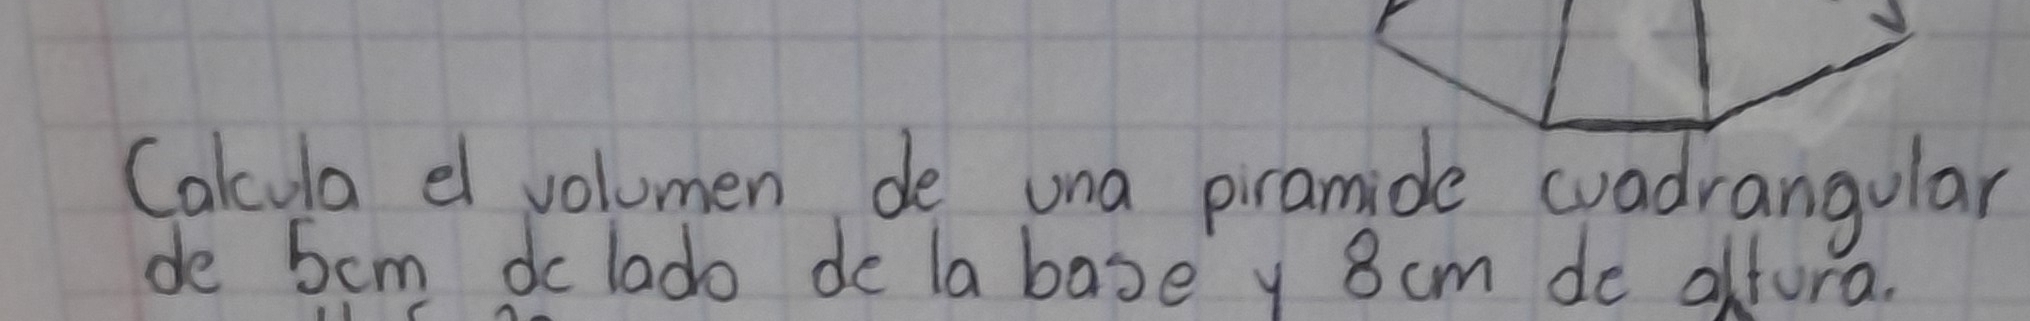 Calcula el volumen de una piramide cuadrangular
de 5cm de lado de la base y 8cm de altura.